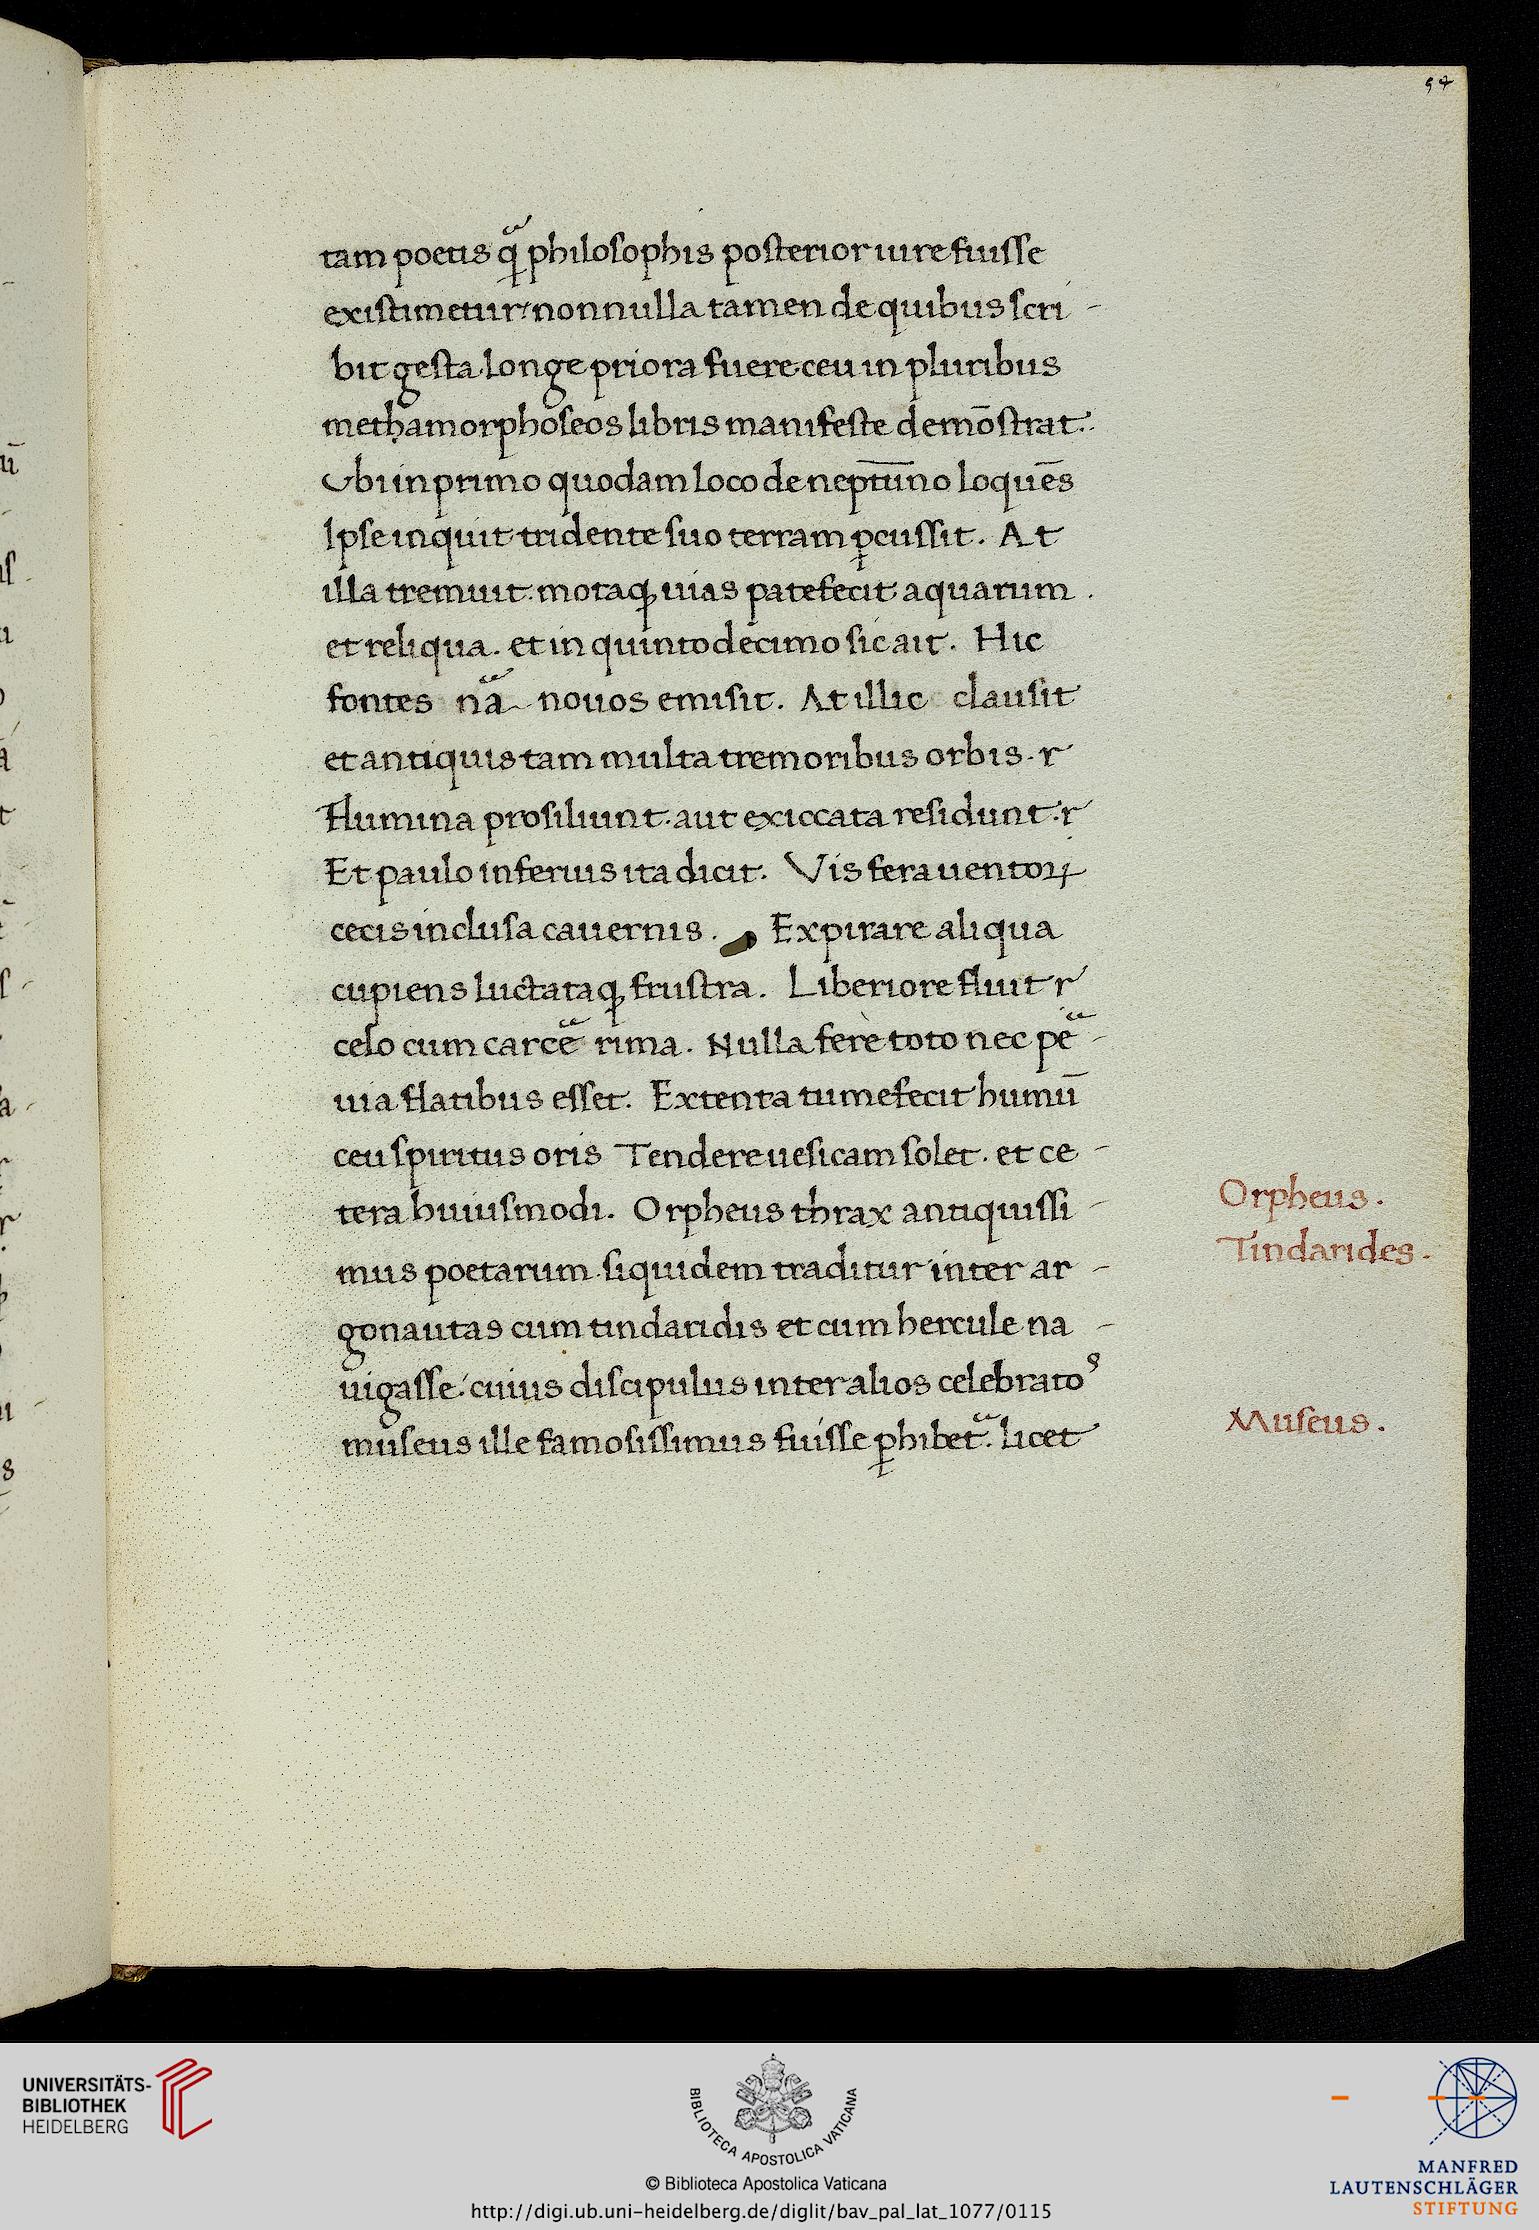 54
tam poetis qᷓ philosophis posterior iure fuisse
existimetur. nonnulla tamen de quibus scri-
bit gesta longe priora fuere. ceu in pluribus
methamorphoseos libris manifeste demōstrat.
Vbi in primo quodam loco de neptūno loquēs
Ipse inquit tridente suo terram ꝑcussit. At
illa tremuit. motaqꝫ uias patefecit aquarum.
et reliqua. et in quintodecimo sic ait. Hic
fontes nᷓa nouos emisit. At illic clausit
et antiquis tam multa tremoribus orbis. r
Flumina prosiliunt. aut exiccata residunt. r
Et paulo inferius ita dicit. Vis fera uentoꝝ
cecis inclusa cauernis. Expirare aliqua
cupiens luctataqꝫ frustra. Liberiore fluit r
celo cum carceᷓ rima. Nulla fere toto nec peᷓ-
uia flatibus esset. Extenta tumefecit humū
ceu spiritus oris Tendere uesicam solet. et ce-
tera huiusmodi. Orpheus thrax antiquissi-
mus poetarum. siquidem traditur inter ar-
gonautas cum tindaridis et cum hercule na-
uigasse. cuius discipulus inter alios celebratoˢ
museus ille famosissimus fuisse ꝑhibetᷓ. licet
Orpheus.
Tindarides.
Museus.
UNIVERSITÄTS-
BIBLIOTHEK
HEIDELBERG
BIBLIOTECA APOSTOLICA VATICANA
© Biblioteca Apostolica Vaticana
http://digi.ub.uni-heidelberg.de/diglit/bav_pal_lat_1077/0115
MANFRED
LAUTENSCHLÄGER
STIFTUNG